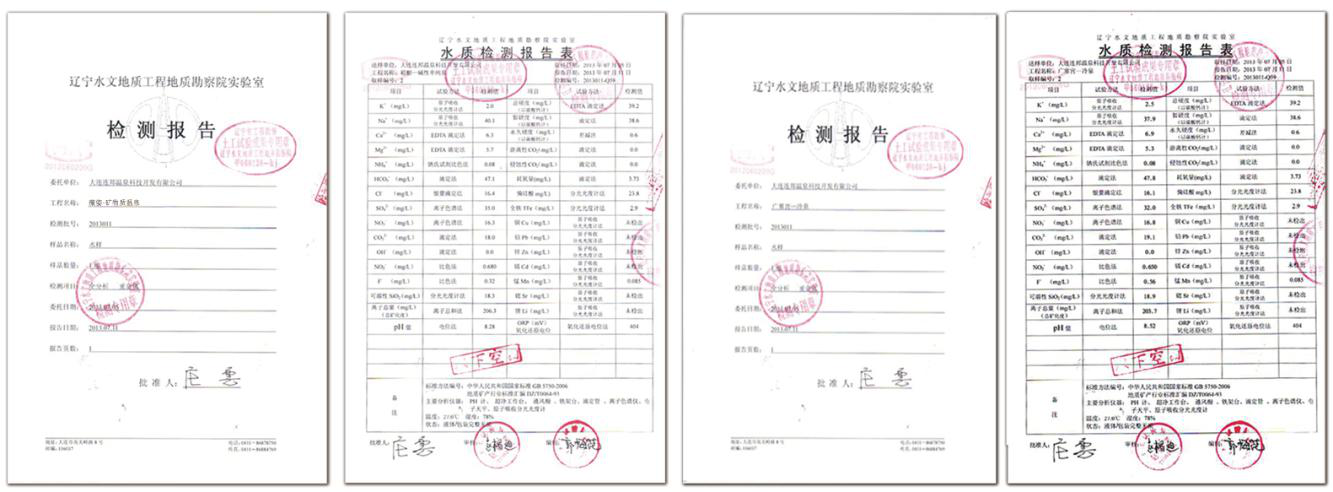 辽宁水文地质工程地质勘察院实验室
检 测 报 告
委托单位: 大连连邦温泉科技开发有限公司
工程名称:
检测批号: 2013011
样品名称: 水样
样品数量:
检测项目: 全分析
委托日期:
报告日期: 2013.07.11
报告页数: 1
批 准 人:
地址: 大连市 8 号
邮编: 116037
辽宁水文地质工程地质勘察院实验室
水质检测报告表
送样单位: 大连连邦温泉科技开发有限公司
取样编号: 2
项目 试验方法 检测值 项目 试验方法 检测值
K⁺ (mg/L) 原子吸收分光光度计法 2.0 总硬度 (mg/L) (以碳酸钙计) EDTA 滴定法 39.2
Na⁺ (mg/L) 原子吸收分光光度计法 40.1 暂硬度 (mg/L) (以碳酸钙计) 滴定法 38.6
Ca²⁺ (mg/L) EDTA 滴定法 6.3 永久硬度 (mg/L) (以碳酸钙计) 差减法 0.6
Mg²⁺ (mg/L) EDTA 滴定法 5.7 游离性 CO₂(mg/L) 滴定法 0.0
NH₄⁺ (mg/L) 钠氏试剂比色法 0.08 侵蚀性 CO₂(mg/L) 滴定法 0.0
HCO₃⁻ (mg/L) 滴定法 47.1 耗氧量(mg/L) 滴定法 3.73
Cl⁻ (mg/L) 银量滴定法 16.4 偏硅酸 (mg/L) 分光光度计法 23.8
SO₄²⁻ (mg/L) 离子色谱法 35.0 全铁 TFe (mg/L) 分光光度计法 2.9
NO₃⁻ (mg/L) 离子色谱法 16.3 铜 Cu (mg/L) 原子吸收分光光度计法 未检出
CO₃²⁻ (mg/L) 滴定法 18.0 铅 Pb (mg/L) 原子吸收分光光度计法 未检出
OH⁻ (mg/L) 滴定法 0.0 锌 Zn (mg/L) 原子吸收分光光度计法 未检出
NO₂⁻ (mg/L) 比色法 0.680 镉 Cd (mg/L) 原子吸收分光光度计法 未检出
F⁻ (mg/L) 比色法 0.32 锰 Mn (mg/L) 原子吸收分光光度计法 0.085
可溶性 SiO₂(mg/L) 分光光度计法 18.3 锶 Sr (mg/L) 原子吸收分光光度计法 未检出
离子总量 (mg/L) (总矿化度) 离子总和法 206.3 锂 Li (mg/L) 原子吸收分光光度计法 未检出
pH 值 电位法 8.28 ORP (mV) 氧化还原电位 氧化还原电位法 404
备注
标准方法编号: 中华人民共和国国家标准 GB 5750-2006
地质矿产行业标准汇编 DZ/T0064-93
主要分析仪器: PH 计、超净工作台、通风橱、铁架台、滴定管、离子色谱仪、电
子天平、原子吸收分光光度计
温度: 27.0℃ 湿度: 78%
状态: 液体/包装完整
批准人: 审核: 编制:
辽宁水文地质工程地质勘察院实验室
检 测 报 告
委托单位: 大连连邦温泉科技开发有限公司
工程名称: 广鹿宫一冷泉
检测批号: 2013011
样品名称: 水样
样品数量:
检测项目: 全分析
委托日期:
报告日期: 2013.07.11
报告页数: 1
批 准 人:
地址: 大连市 8 号
邮编: 116037
辽宁水文地质工程地质勘察院实验室
水质检测报告表
送样单位: 大连连邦温泉科技开发有限公司
工程名称: 广鹿宫一冷泉
取样编号: 2 检测编号: 2013011-Q59
项目 试验方法 检测值 项目 试验方法 检测值
K⁺ (mg/L) 原子吸收分光光度计法 2.5 总硬度 (mg/L) (以碳酸钙计) EDTA 滴定法 39.2
Na⁺ (mg/L) 原子吸收分光光度计法 37.9 暂硬度 (mg/L) (以碳酸钙计) 滴定法 38.6
Ca²⁺ (mg/L) EDTA 滴定法 6.9 永久硬度 (mg/L) (以碳酸钙计) 差减法 0.6
Mg²⁺ (mg/L) EDTA 滴定法 5.3 游离性 CO₂(mg/L) 滴定法 0.0
NH₄⁺ (mg/L) 钠氏试剂比色法 0.08 侵蚀性 CO₂(mg/L) 滴定法 0.0
HCO₃⁻ (mg/L) 滴定法 47.8 耗氧量(mg/L) 滴定法 3.73
Cl⁻ (mg/L) 银量滴定法 16.1 偏硅酸 (mg/L) 分光光度计法 23.8
SO₄²⁻ (mg/L) 离子色谱法 32.0 全铁 TFe (mg/L) 分光光度计法 2.9
NO₃⁻ (mg/L) 离子色谱法 16.8 铜 Cu (mg/L) 原子吸收分光光度计法 未检出
CO₃²⁻ (mg/L) 滴定法 19.1 铅 Pb (mg/L) 原子吸收分光光度计法 未检出
OH⁻ (mg/L) 滴定法 0.0 锌 Zn (mg/L) 原子吸收分光光度计法 未检出
NO₂⁻ (mg/L) 比色法 0.650 镉 Cd (mg/L) 原子吸收分光光度计法 未检出
F⁻ (mg/L) 比色法 0.56 锰 Mn (mg/L) 原子吸收分光光度计法 0.085
可溶性 SiO₂(mg/L) 分光光度计法 18.9 锶 Sr (mg/L) 原子吸收分光光度计法 未检出
离子总量 (mg/L) (总矿化度) 离子总和法 203.7 锂 Li (mg/L) 原子吸收分光光度计法 未检出
pH 值 电位法 8.32 ORP (mV) 氧化还原电位 氧化还原电位法 404
备注
标准方法编号: 中华人民共和国国家标准 GB 5750-2006
地质矿产行业标准汇编 DZ/T0064-93
主要分析仪器: PH 计、超净工作台、通风橱、铁架台、滴定管、离子色谱仪、电
子天平、原子吸收分光光度计
温度: 27.0℃ 湿度: 78%
状态: 液体/包装完整
批准人: 审核: 编制: